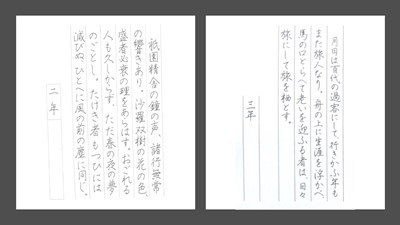 月日は百代の過客にして、行きかふ年も
また旅人なり。舟の上に生涯を浮かべ、
馬の口とらへて老いを迎ふる者は、日々
旅にして旅を栖とす。
三年
祇園精舎の鐘の声、諸行無常
の響きあり。沙羅双樹の花の色、
盛者必衰の理をあらはす。おごれる
人も久しからず、ただ春の夜の夢
のごとし。たけき者もつひには
滅びぬ、ひとへに風の前の塵に同じ。
二年